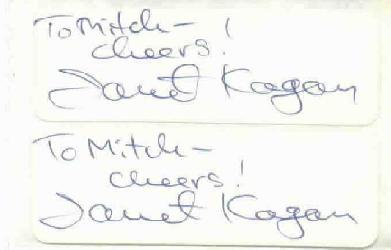 To Mitch-
cheers!
Janet Kagan
To Mitch-
cheers!
Janet Kagan